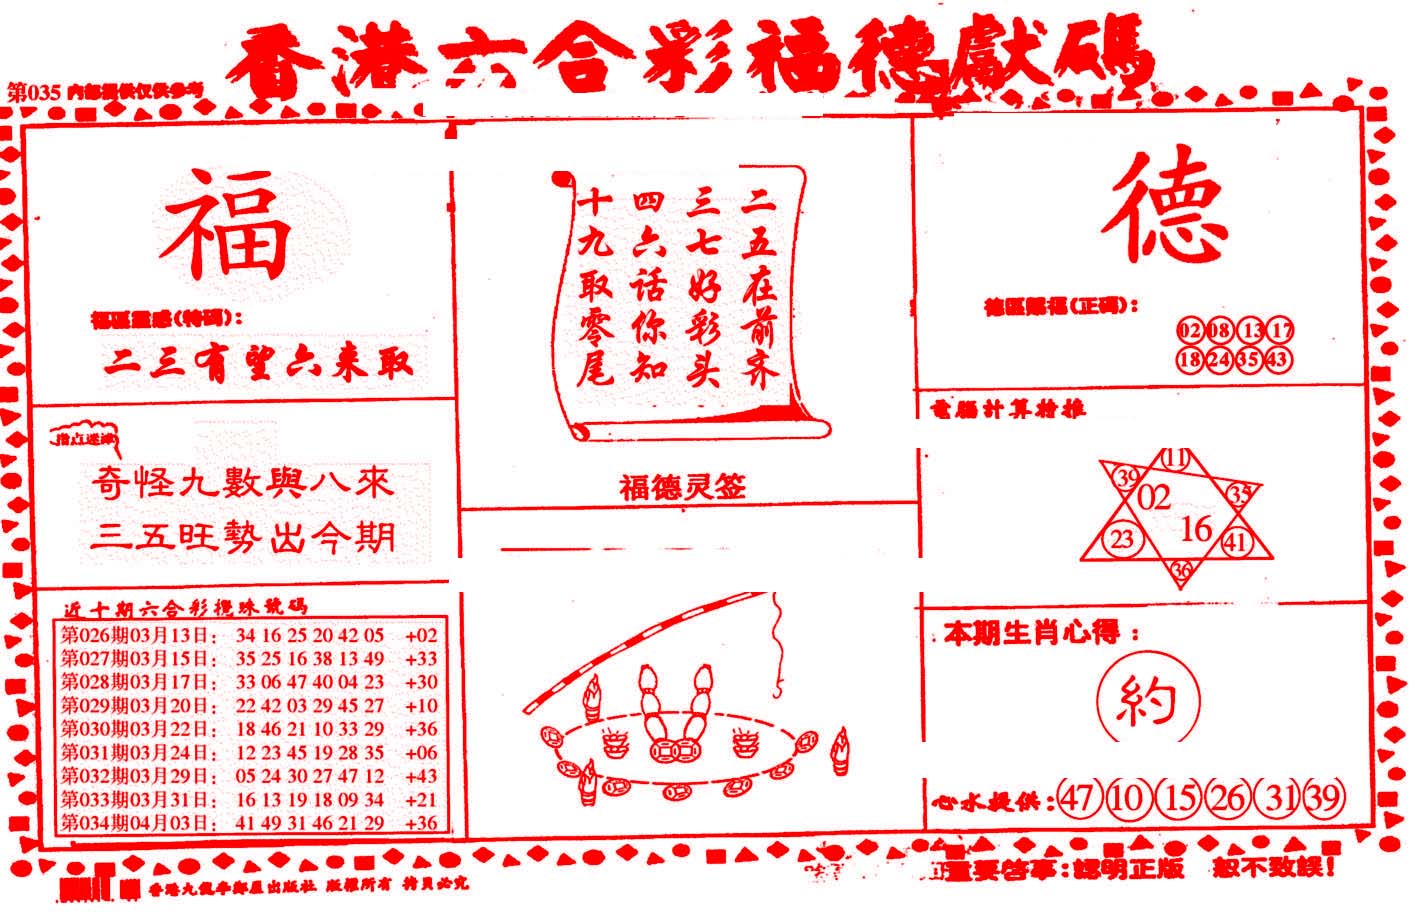 香港六合彩福德獻碼
第035 内部提供仅供参考
福
福區靈感(特碼)：
二三有望六来取
指点迷津
奇怪九數與八來
三五旺勢出今期
近十期六合彩攪珠號碼
第026期03月13日： 34 16 25 20 42 05 +02
第027期03月15日： 35 25 16 38 13 49 +33
第028期03月17日： 33 06 47 40 04 23 +30
第029期03月20日： 22 42 03 29 45 27 +10
第030期03月22日： 18 46 21 10 33 29 +36
第031期03月24日： 12 23 45 19 28 35 +06
第032期03月29日： 05 24 30 27 47 12 +43
第033期03月31日： 16 13 19 18 09 34 +21
第034期04月03日： 41 49 31 46 21 29 +36
二五在前齐
三七好彩头
四六话你知
十九取零尾
福德灵签
德
德區賜福(正碼)：
02 08 13 17
18 24 35 43
電腦計算特推
11
39 02 35
16
23 41
36
本期生肖心得：
約
心水提供：47 10 15 26 31 39
重要啓事：認明正版 恕不致誤！
出版社 版權所有 拷貝必究